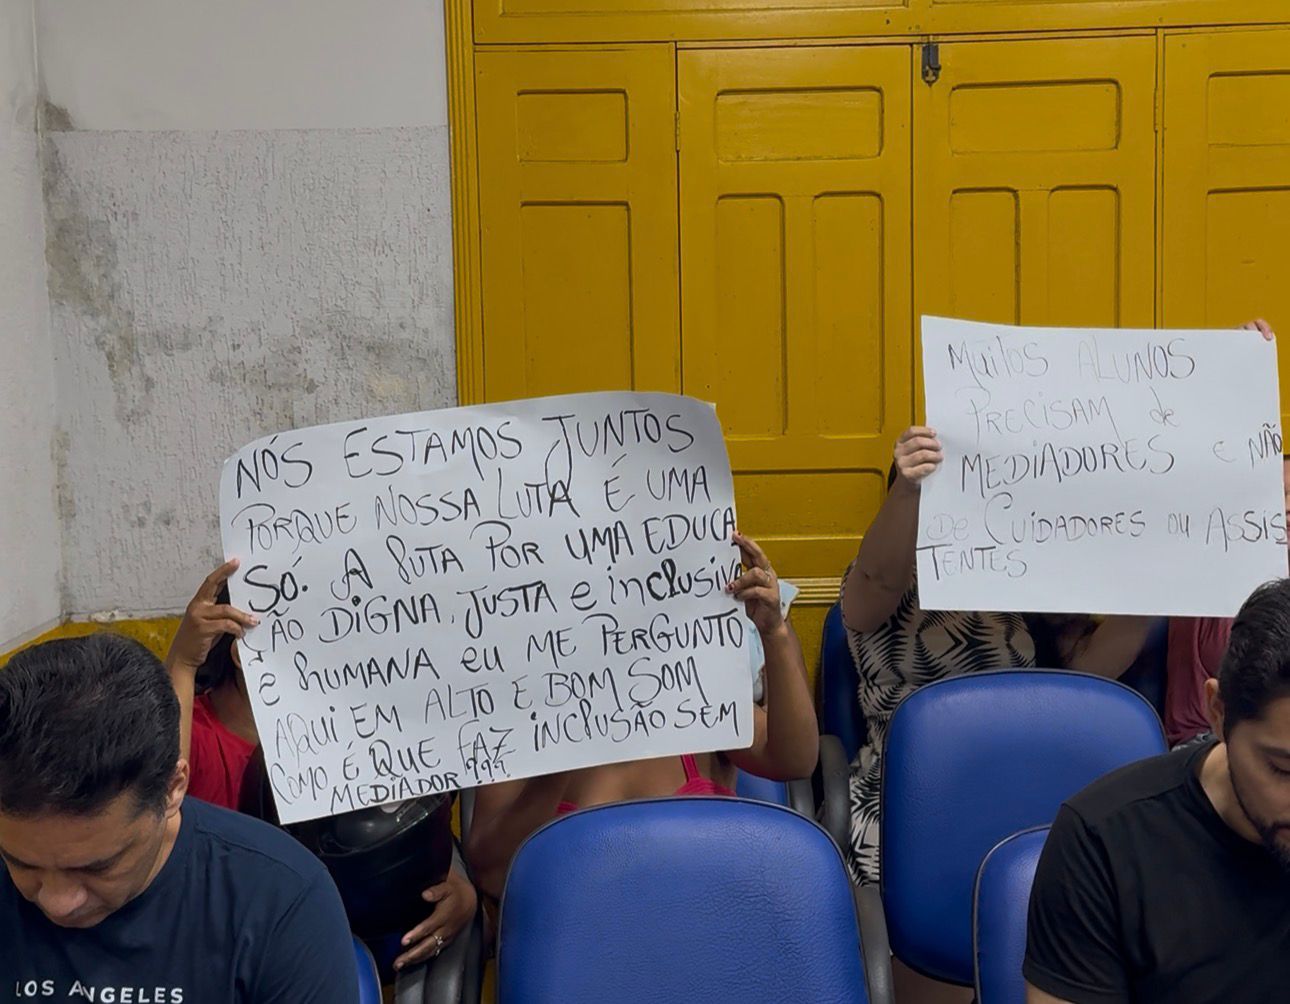 NÓS ESTAMOS JUNTOS
PORQUE NOSSA LUTA É UMA
SÓ. A LUTA POR UMA EDUCA
ÇÃO DIGNA, JUSTA e inclusiva
e humANA eu ME PERGUNTO
AQUI EM ALTO E BOM SOM
COMO É QUE FAZ INCLUSÃO SEM
MEDIADOR???
Muitos ALUNOS
PRECISAM de
MEDIADORES e NÃO
De CUIDADORES ou ASSIS
TENTES
LOS ANGELES